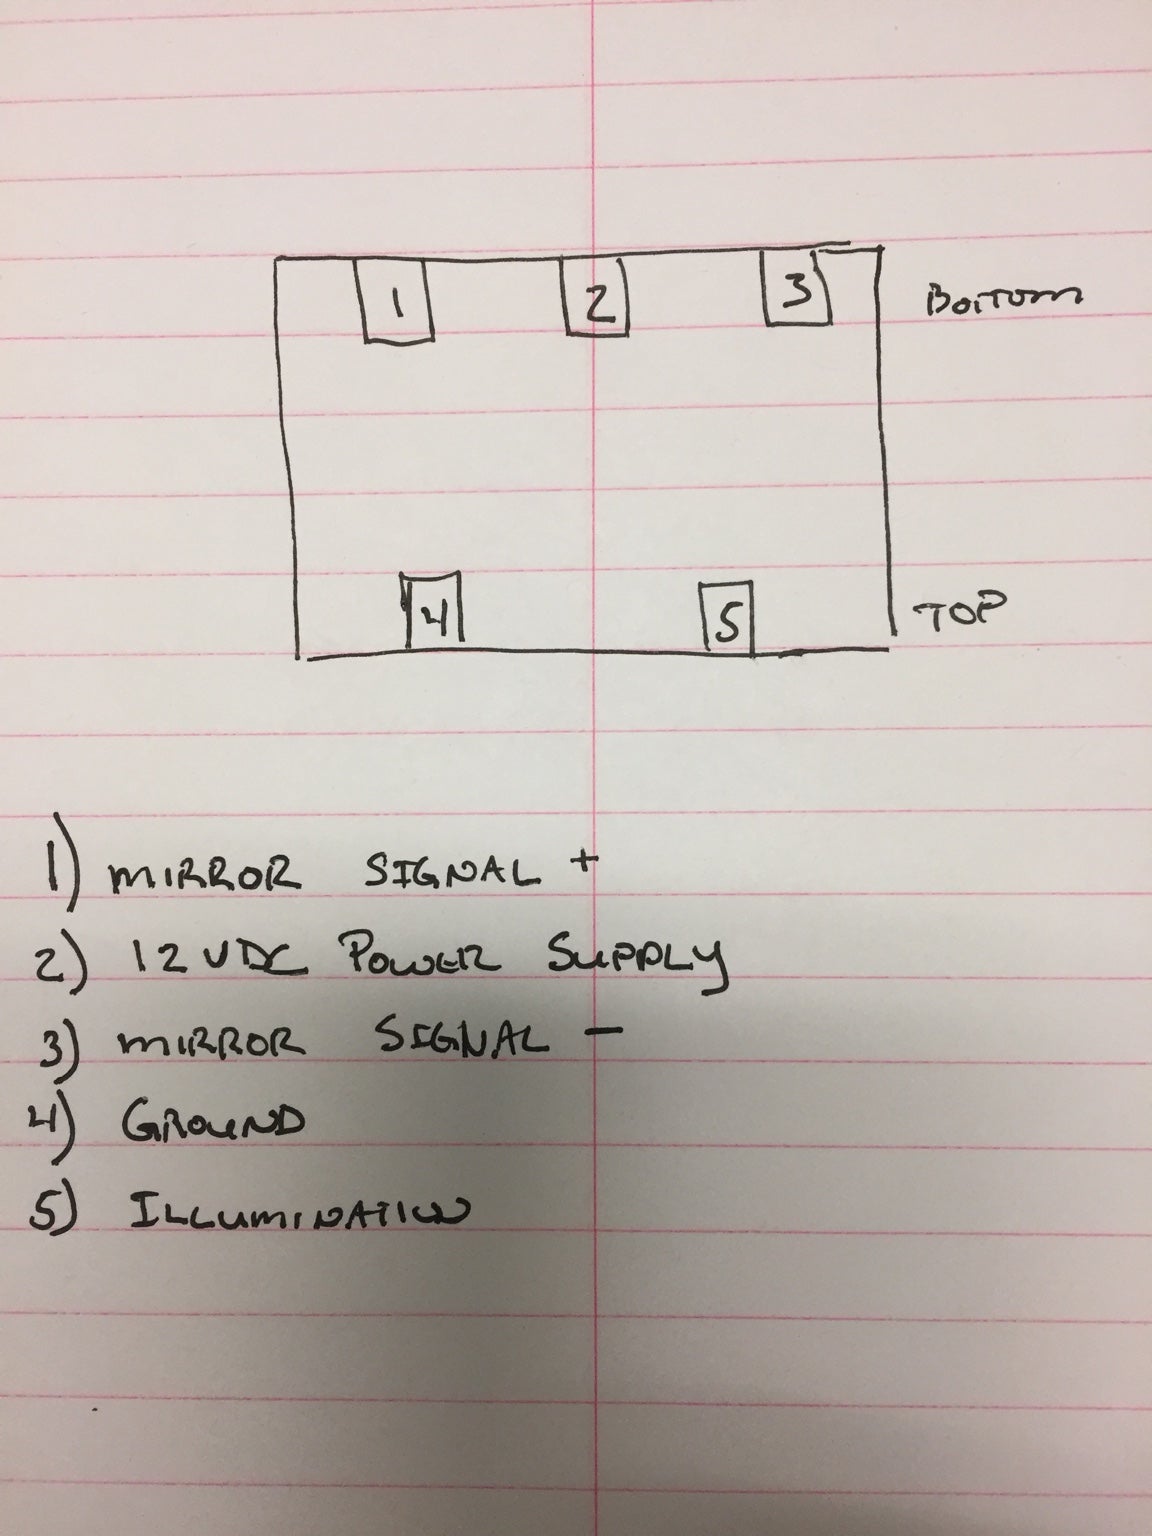 1 2 3 BOTTOM
4 5 TOP
1) MIRROR SIGNAL +
2) 12 VDC POWER SUPPLY
3) MIRROR SIGNAL -
4) GROUND
5) ILLUMINATION